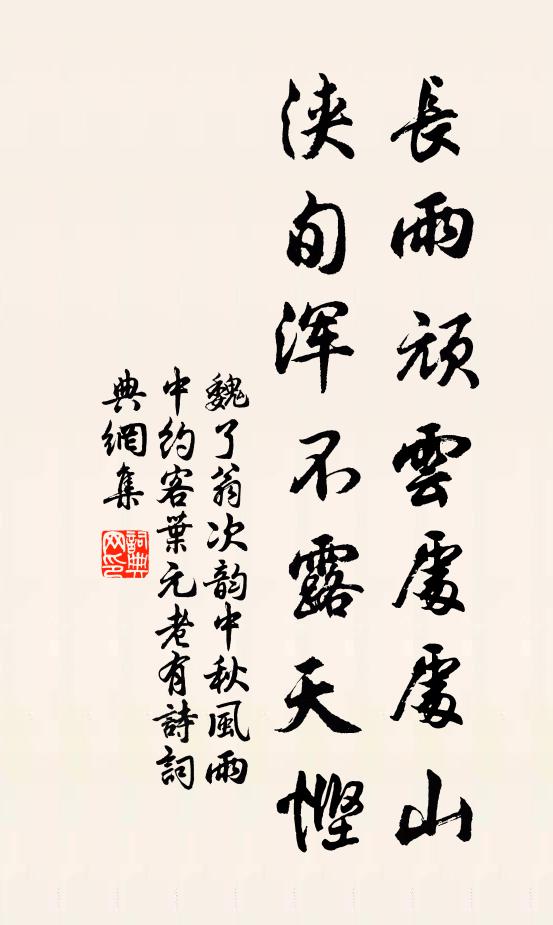 長雨頑雲處處山
浹旬渾不露天慳
魏了翁次韵中秋風雨
中約客葉元老有詩詞
典網集
詞典网印